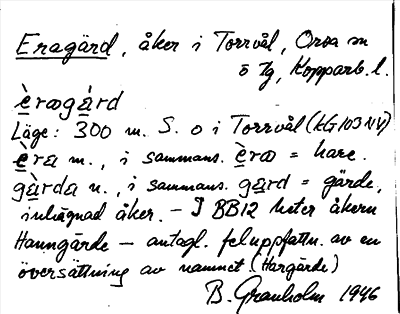 Eragärd, åker i Torrvål, Orsa sn
ö Tg, Kopparb. l.
è̱rægà̱rd
Läge: 300 m. S. o i Torrvål (KG 103 NV)
è̱ra m., i sammans. è̱ræ = hare.
gà̱rda n., i sammans. ga̱rd = gärde,
inhägnad åker. – I BB12 heter åkern
Hanngärde – antagl. feluppfattn. av en
översättning av namnet (Hargärde)
B. Granholm 1946